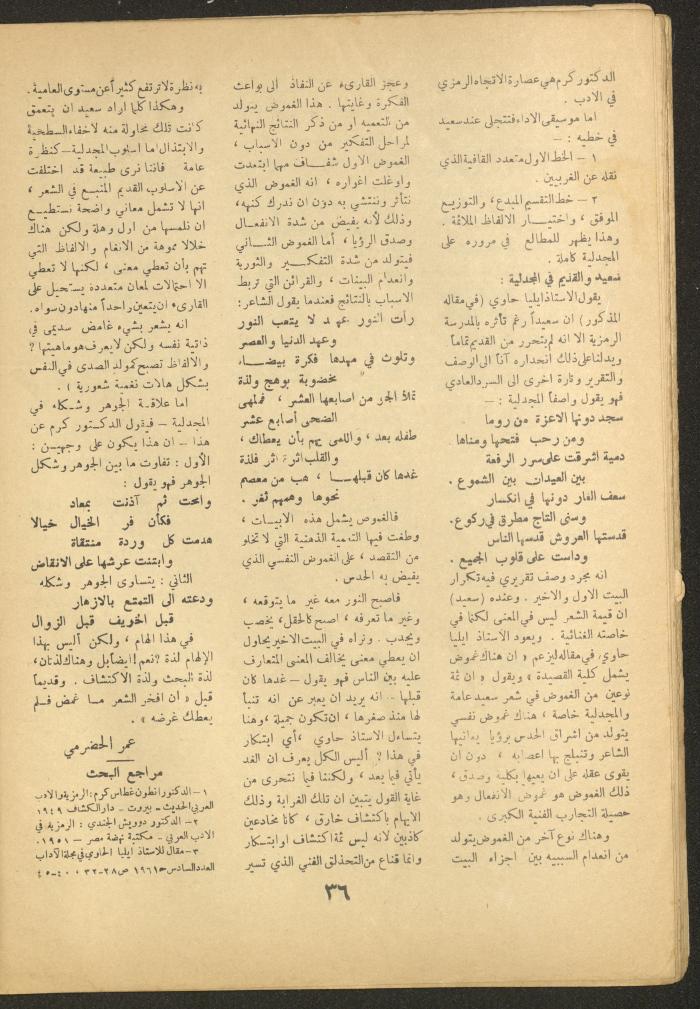 الدكتور كرم هي عصارة الاتجاه الرمزي
في الادب .
اما موسيقى الاداء فتتجلى عند سعيد
في خطيه : —
١ — الخط الاول متعدد القافية الذي
نقله عن الغربيين .
٢ — خط التقسيم المبدع ، والتوزيع
الموفق ، واختيـــار الالفاظ الملائمة .
وهذا يظهر للمطالع في مروره على
المجدلية كاملة .
سعيد والقديم في المجدلية :
يقول الاستاذ ايليا حاوي (في مقاله
المذكور) ان سعيداً رغم تأثره بالمدرسة
الرمزية الا انه لم يتحرر من القديم تماماً
ويدلنا على ذلك انحداره آناً الى الوصف
والتقرير وتارة اخرى الى السرد العادي
فهو يقول واصفاً المجدلية : —
سجد دونها الاعزة من روما
ومن رحب فتحها ومناها .
دمية اشرقت على سرر الرفعة
بين العيدان بين الشموع .
سعف الغار دونها في انكسار
وسنى التاج مطرق في ركوع .
قدستها العروش قدسها الناس
وداست على قلوب الجميع .
انه مجرد وصف تقريري فيه تكرار
البيت الاول والاخير . وعنده (سعيد)
ان قيمة الشعر ليس في المعنى لكنها في
خاصته الغنائية . ويعود الاستاذ ايليا
حاوي في مقاله ليزعم « ان هناك غموض
يشمل كلية القصيدة » ويقول « ان ثمة
نوعين من الغموض في شعر سعيد عامة
والمجدلية خاصة ، هناك غموض نفسي
يتولد من اشراق الحدس برؤيا يعانيها
الشاعر وتنبلج بها اعصابه ، دون ان
يقوى عقله على ان يعيها بكلية وصدق ،
ذلك الغموض هو غموض الانفعال وهو
حصيلة التجارب الفنية الكبرى .
وهناك نوع آخر من الغموض يتولد
من انعدام السببيه بين اجزاء البيت
وعجز القارىء عن النفاذ الى بواعث
الفكرة وغايتها . هذا الغموض يتولد
من التعميه او من ذكر النتائج النهائية
لمراحل التفكير من دون الاسباب ،
الغموض الاول شفـــاف مهما ابتعدت
واوغلت اغواره ، انه الغموض الذي
نتأثر وننتشي به دون ان ندرك كنهه،
وذلك لأنه يفيض من شدة الانفعـال
وصدق الرؤيا ، أما الغموض الثـــاني
فيتولد من شدة التفكـــير والتورية
وانعدام البينات ، والقرائن التي تربط
الاسباب بالنتائج فعندما يقول الشاعر :
رأت النور عهـد لا يتعب النور
وعهد الدنيا والعصر
وتلوت في مهدها فكرة بيضـــاء
مخضوبة بوهج ولذة
تملأ الجو من اصابعها العشر ، فملهى
الضحى أصابع عشر
طفله بعد ، واللمى يهم بأن يعطاك ،
والقلب اثرة اثر فلذة
غدها كان قبلهـــا ، هب من معصم
نحوها وهمهم ثغر .
فالغموص يشمل هذه الابيــات ،
وطغت فيها التعمية الذهنية التي لا تخلو
من التقصد ، على الغموض النفسي الذي
يفيض به الحدس .
فاصبح النور معه غير ما يتوقعه ،
وغير ما تعرفه ، اصبح كالحقل، يخصب
ويجدب . ونراه في البيت الاخير يحاول
ان يعطي معنى يخالف المعنى المتعارف
عليه بين الناس فهو يقول — غدها كان
قبلها ... انه يريد ان يعبر عن انه تنبأ
لها منذ صغرها ، ان تكون جميلة ، وهنا
يتساءل الاستاذ حاوي ، أي ابتكار
في هذا ؟ أليس الكل يعرف ان الغد
يأتي فيما بعد ، ولكننا فيما نتحرى من
غاية القول يتبين ان تلك الغرابة وذلك
الايهام باكتشاف خارق ، كانا مخادعين
كاذبين لانه ليس ثمة اكتشاف او ابتسكار
وانما قناع من التحذلق الفني الذي تسير
به نظرة لا ترتفع كثيراً عن مستوى العامية .
وهكذا كلما اراد سعيد ان يتعمق
كانت تلك محاولة منه لاخفاء السطحية
والابتذال اما اسلوب المجدلية — كنظرة
عامة فاننا نرى طبيعة قد اختلفت
عن الاسلوب القديم المتبع في الشعر ،
انها لا تشمل معاني واضحة نستطيــع
ان نلمسها من اول وهلة ولكن هناك
خلالا مموهة من الانغام والالفاظ التي
تهم بأن تعطي معنى ، لكنها لا تعطي
الا احتمالات لمعان متعددة يستحيل على
القارىء ان يتعين واحداً منها دون سواه .
انه يشعر بشيء غامض سديمى في
ذاتية نفسه ولكن لا يعرف هو ماهيتها ؟
والالفاظ تصبح كمولد الصدى في النفس
بشكل هالات نغمية شعورية ) .
اما علاقـة الجوهر وشـكله في
المجدلية — فيقول الدكـتور كرم عن
هذا — ان هذا يكون على وجهيـن :
الأول : تفاوت ما بين الجوهر وشكل
الجوهر فهو يقول :
وامحت ثم آذنت بمعاد
فكأن فر الخيال خيالا
هدمت كل وردة منتقاة
وابتنت عرشها على الانقاض
الثاني : يتساوى الجوهر وشكله
ودعته الى التمتع بالازهار
قبل الخريف قبل الزوال
في هذا الهام ، ولكن أليس بهذا
الإلهام لذة ؟ نعم ! ايضاً بل وهناك لذتان،
لذة البحث ولذة الاكتشاف . وقديماً
قيل « ان افخر الشعر مــا غمض فـلم
يعطك غرضه » .
عمر الحضرمي
مراجع البحث
١ — الدكتور انطون غطاس كرم: الرمزية والادب
العربي الحديث — بيروت – دار الكشاف ١٩٤٩
٢ — الدكتور درويش الجندي : الرمزية في
الادب العربي . مكتبة نهضة مصر — ١٩٥١ .
٣ — مقال للاستاذ ايليا الحاوي في مجلة الآداب
العدد السادس ١٩٦١ ص ٢٨-٣٢ ، ٤٠-٤٥
٣٦